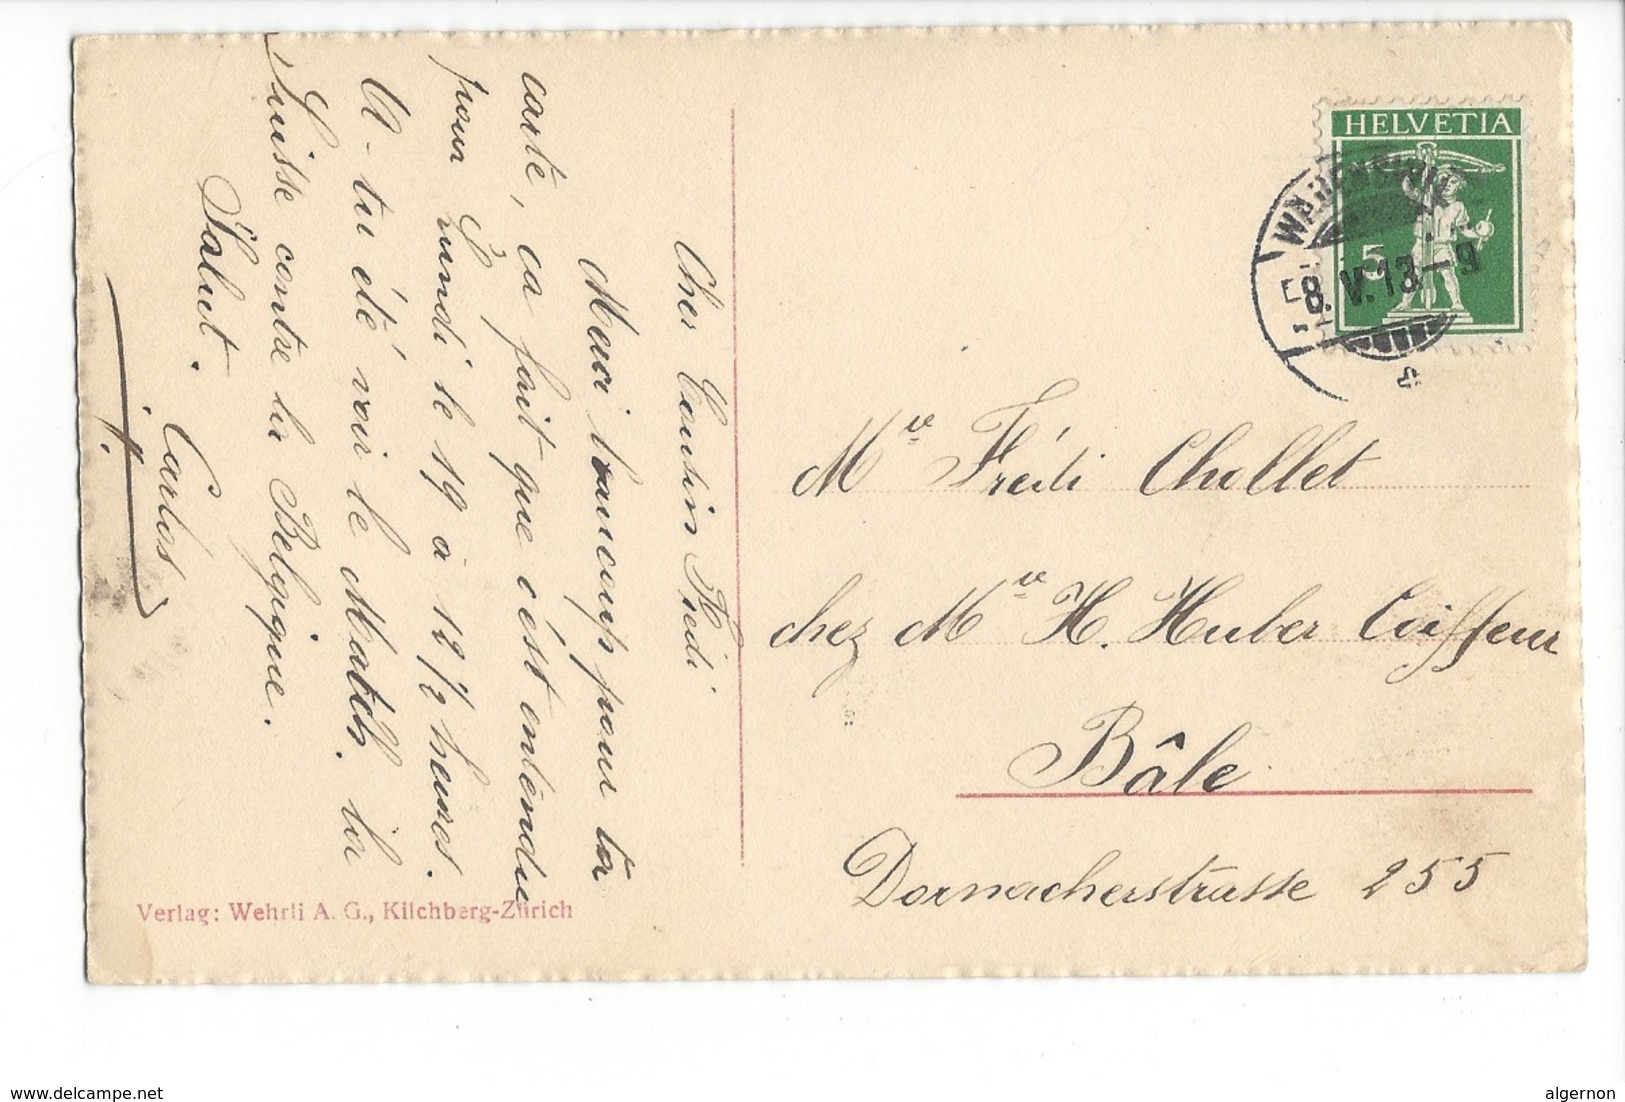 Cher Cousin Fredi
Merci beaucoup pour ta
carte, ça fait que c'est entendu
pour lundi le 19 à 12 1/2 heures.
A-tu été voir le Match la
Suisse contre la Belgique.
Salut.
Carlos
Verlag: Wehrli A. G., Kilchberg-Zürich
HELVETIA
5
8. V. 13.-9
Mr Frédi Chollet
chez Mr H. Huber Coiffeur
Bâle
Dornacherstrasse 255
www.delcampe.net
algernon